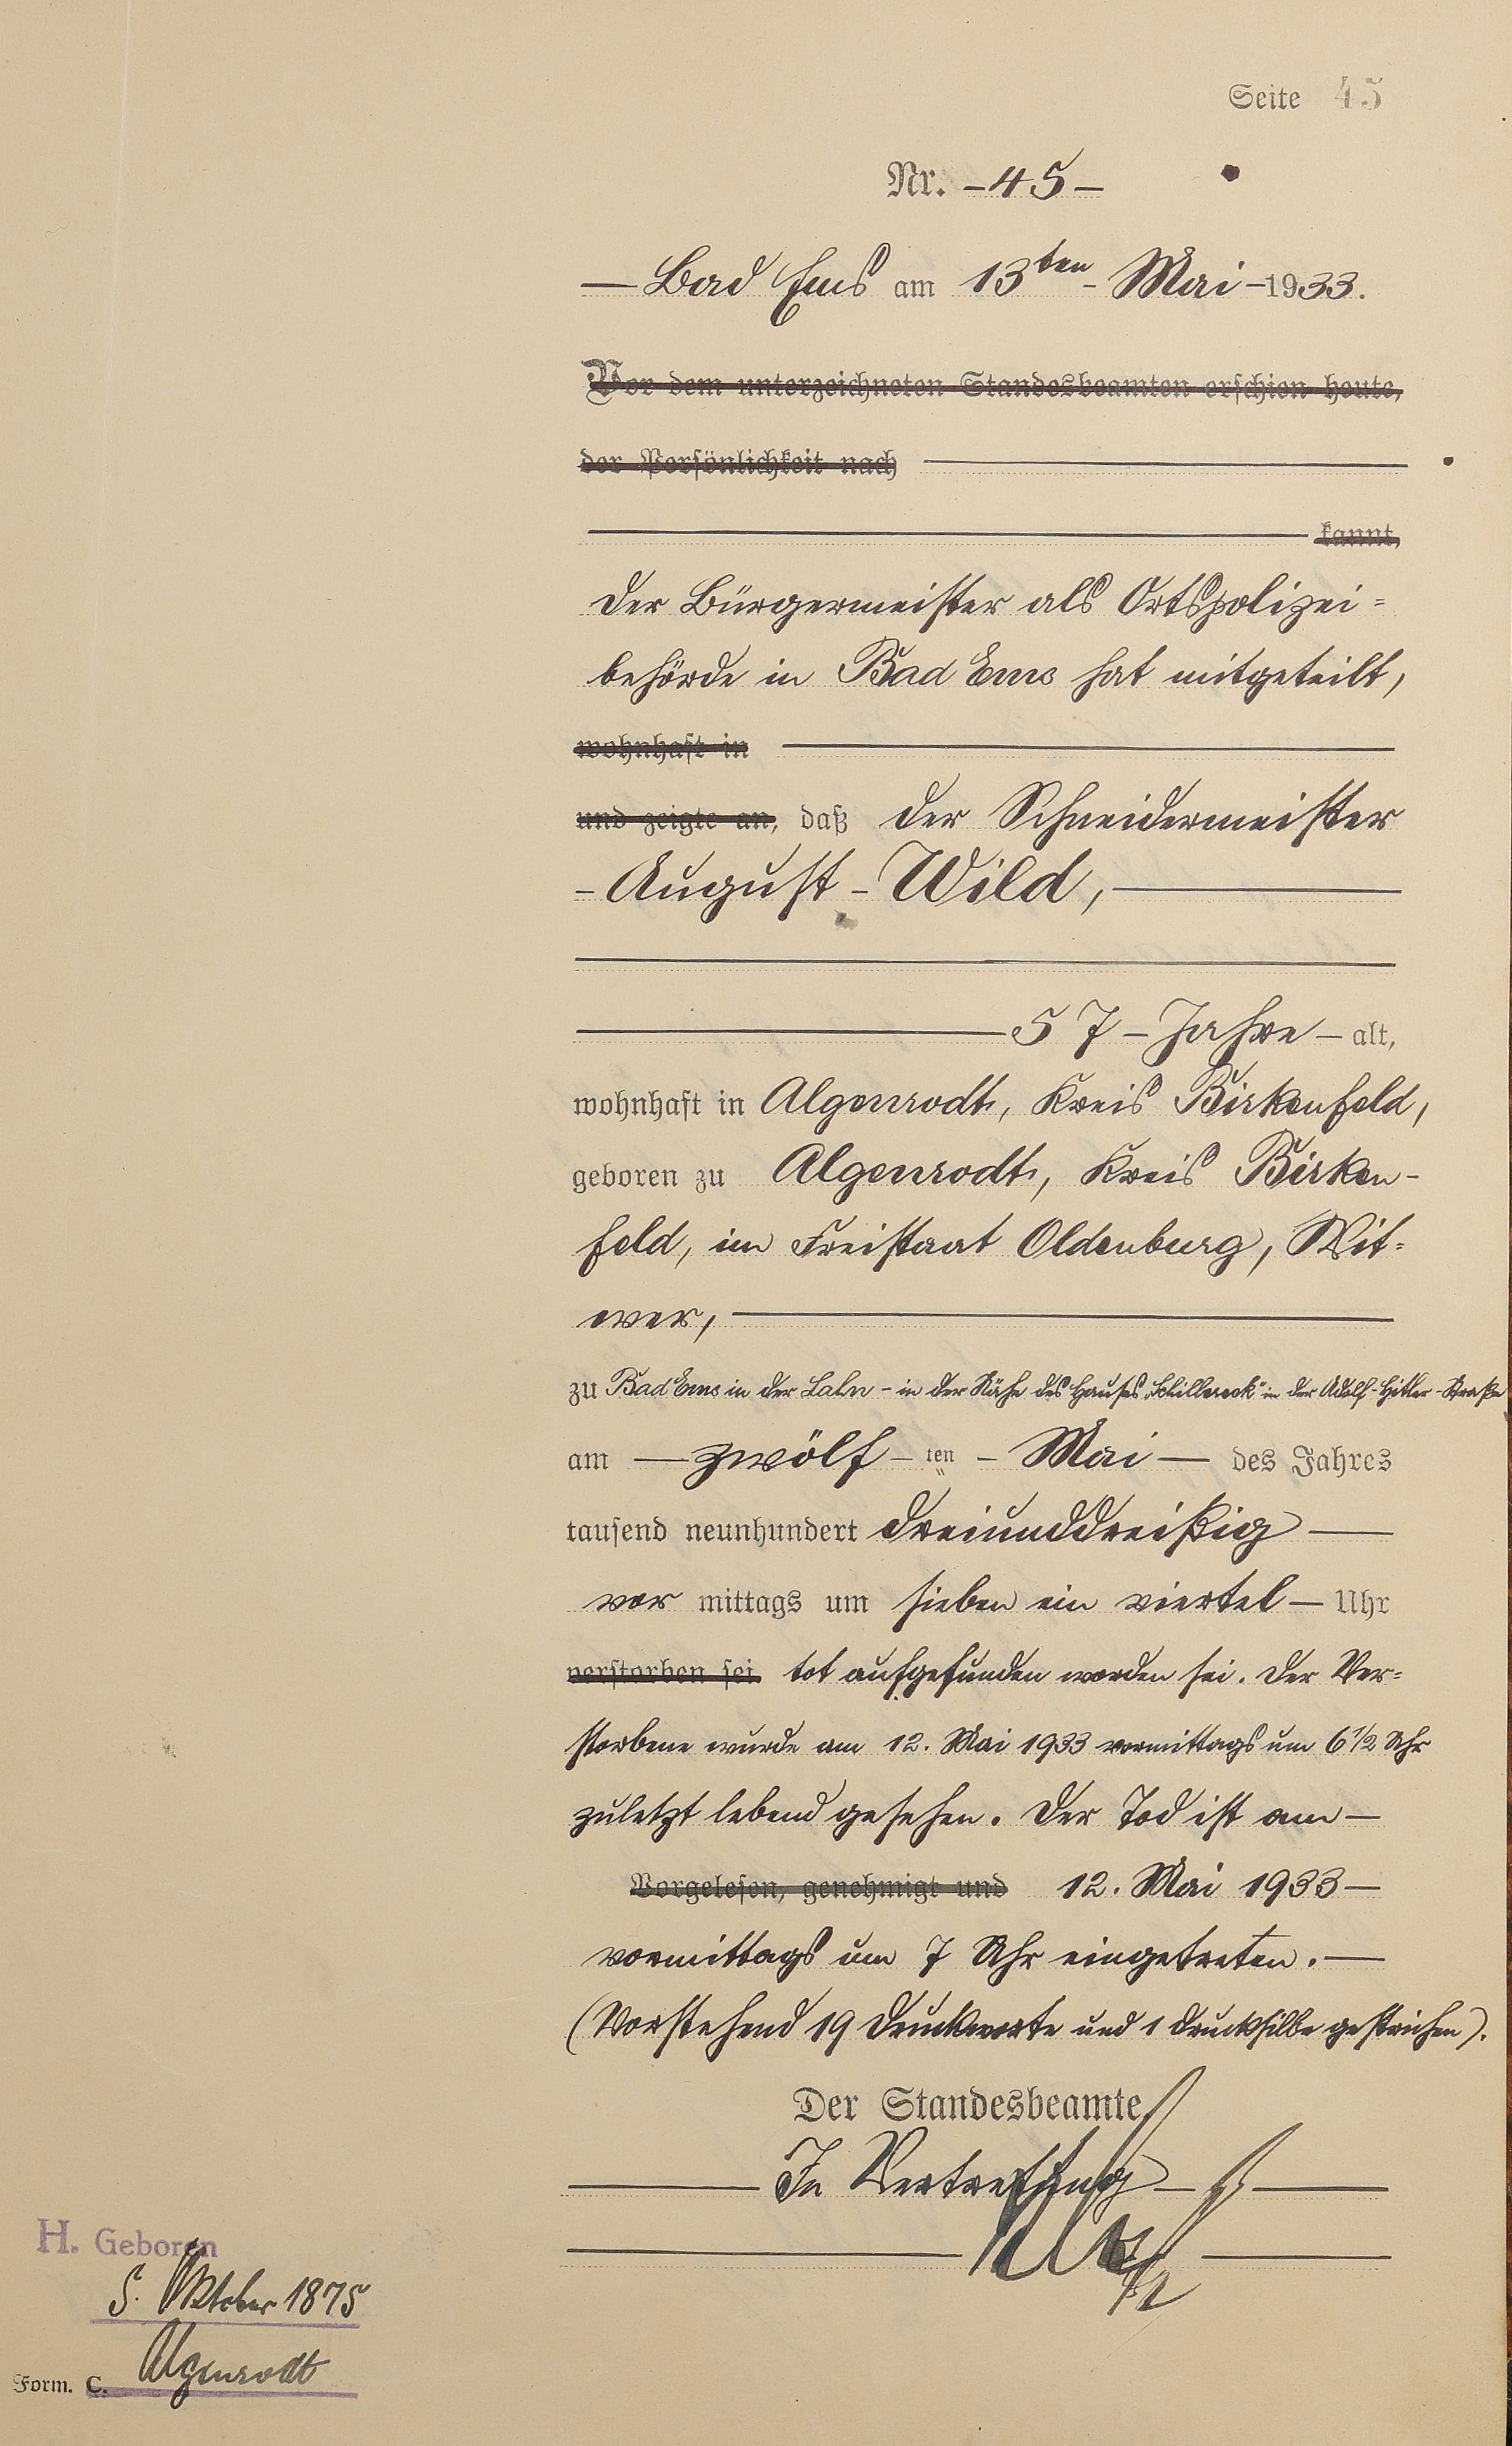 Seite 45
Nr. -45-
— Bad Ems am 13ten - Mai - 1933.
Vor dem unterzeichneten Standesbeamten erschien heute,
der Persönlichkeit nach
kannt,
Der Bürgermeister als Ortspolizei=
behörde in Bad Ems hat mitgeteilt,
wohnhaft in
und zeigte an, daß der Schneidermeister
- August - Wild, —
57 - Jahre - alt,
wohnhaft in Algenrodt, Kreis Birkenfeld,
geboren zu Algenrodt, Kreis Birken-
feld, im Freistaat Oldenburg, Wit=
wer, —
zu Bad Ems in der Lahn - in der Nähe des Hauses „Schillereck" in der Adolf-Hitler-Straße
am — zwölf - ten - Mai — des Jahres
tausend neunhundert dreiunddreißig —
vor mittags um sieben ein viertel — Uhr
verstorben sei tot aufgefunden worden sei. Der Ver=
storbene wurde am 12. Mai 1933 vormittags um 6 1/2 Uhr
zuletzt lebend gesehen. Der Tod ist am —
Vorgelesen, genehmigt und 12. Mai 1933 —
vormittags um 7 Uhr eingetreten. —
(Vorstehend 19 Druckworte und 1 Drucksilbe gestrichen).
Der Standesbeamte
In Vertretung
H. Geboren
5. Oktober 1875
Algenrodt
Form. C.